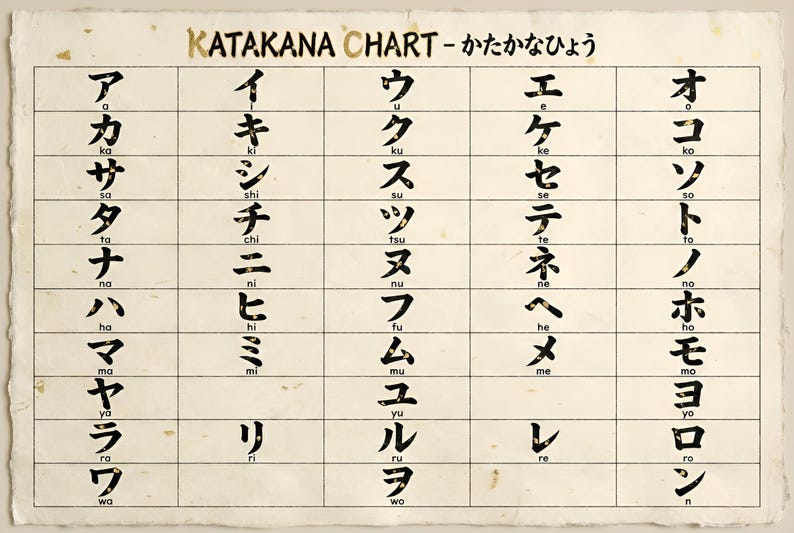 KATAKANA CHART - かたかなひょう
ア イ ウ エ オ
a i u e o
カ キ ク ケ コ
ka ki ku ke ko
サ シ ス セ ソ
sa shi su se so
タ チ ツ テ ト
ta chi tsu te to
ナ ニ ヌ ネ ノ
na ni nu ne no
ハ ヒ フ ヘ ホ
ha hi fu he ho
マ ミ ム メ モ
ma mi mu me mo
ヤ ユ ヨ
ya yu yo
ラ リ ル レ ロ
ra ri ru re ro
ワ ヲ ン
wa wo n